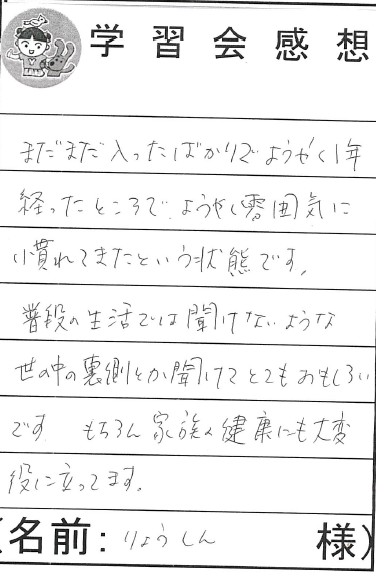 学習会感想
まだまだ入ったばかりでようやく1年
経ったところで、ようやく雰囲気に
慣れてきたという状態です。
普段の生活では聞けないような
世の中の裏側とか聞けてとてもおもしろい
です もちろん家族の健康にも大変
役に立ってます。
(名前:りょうしん 様)